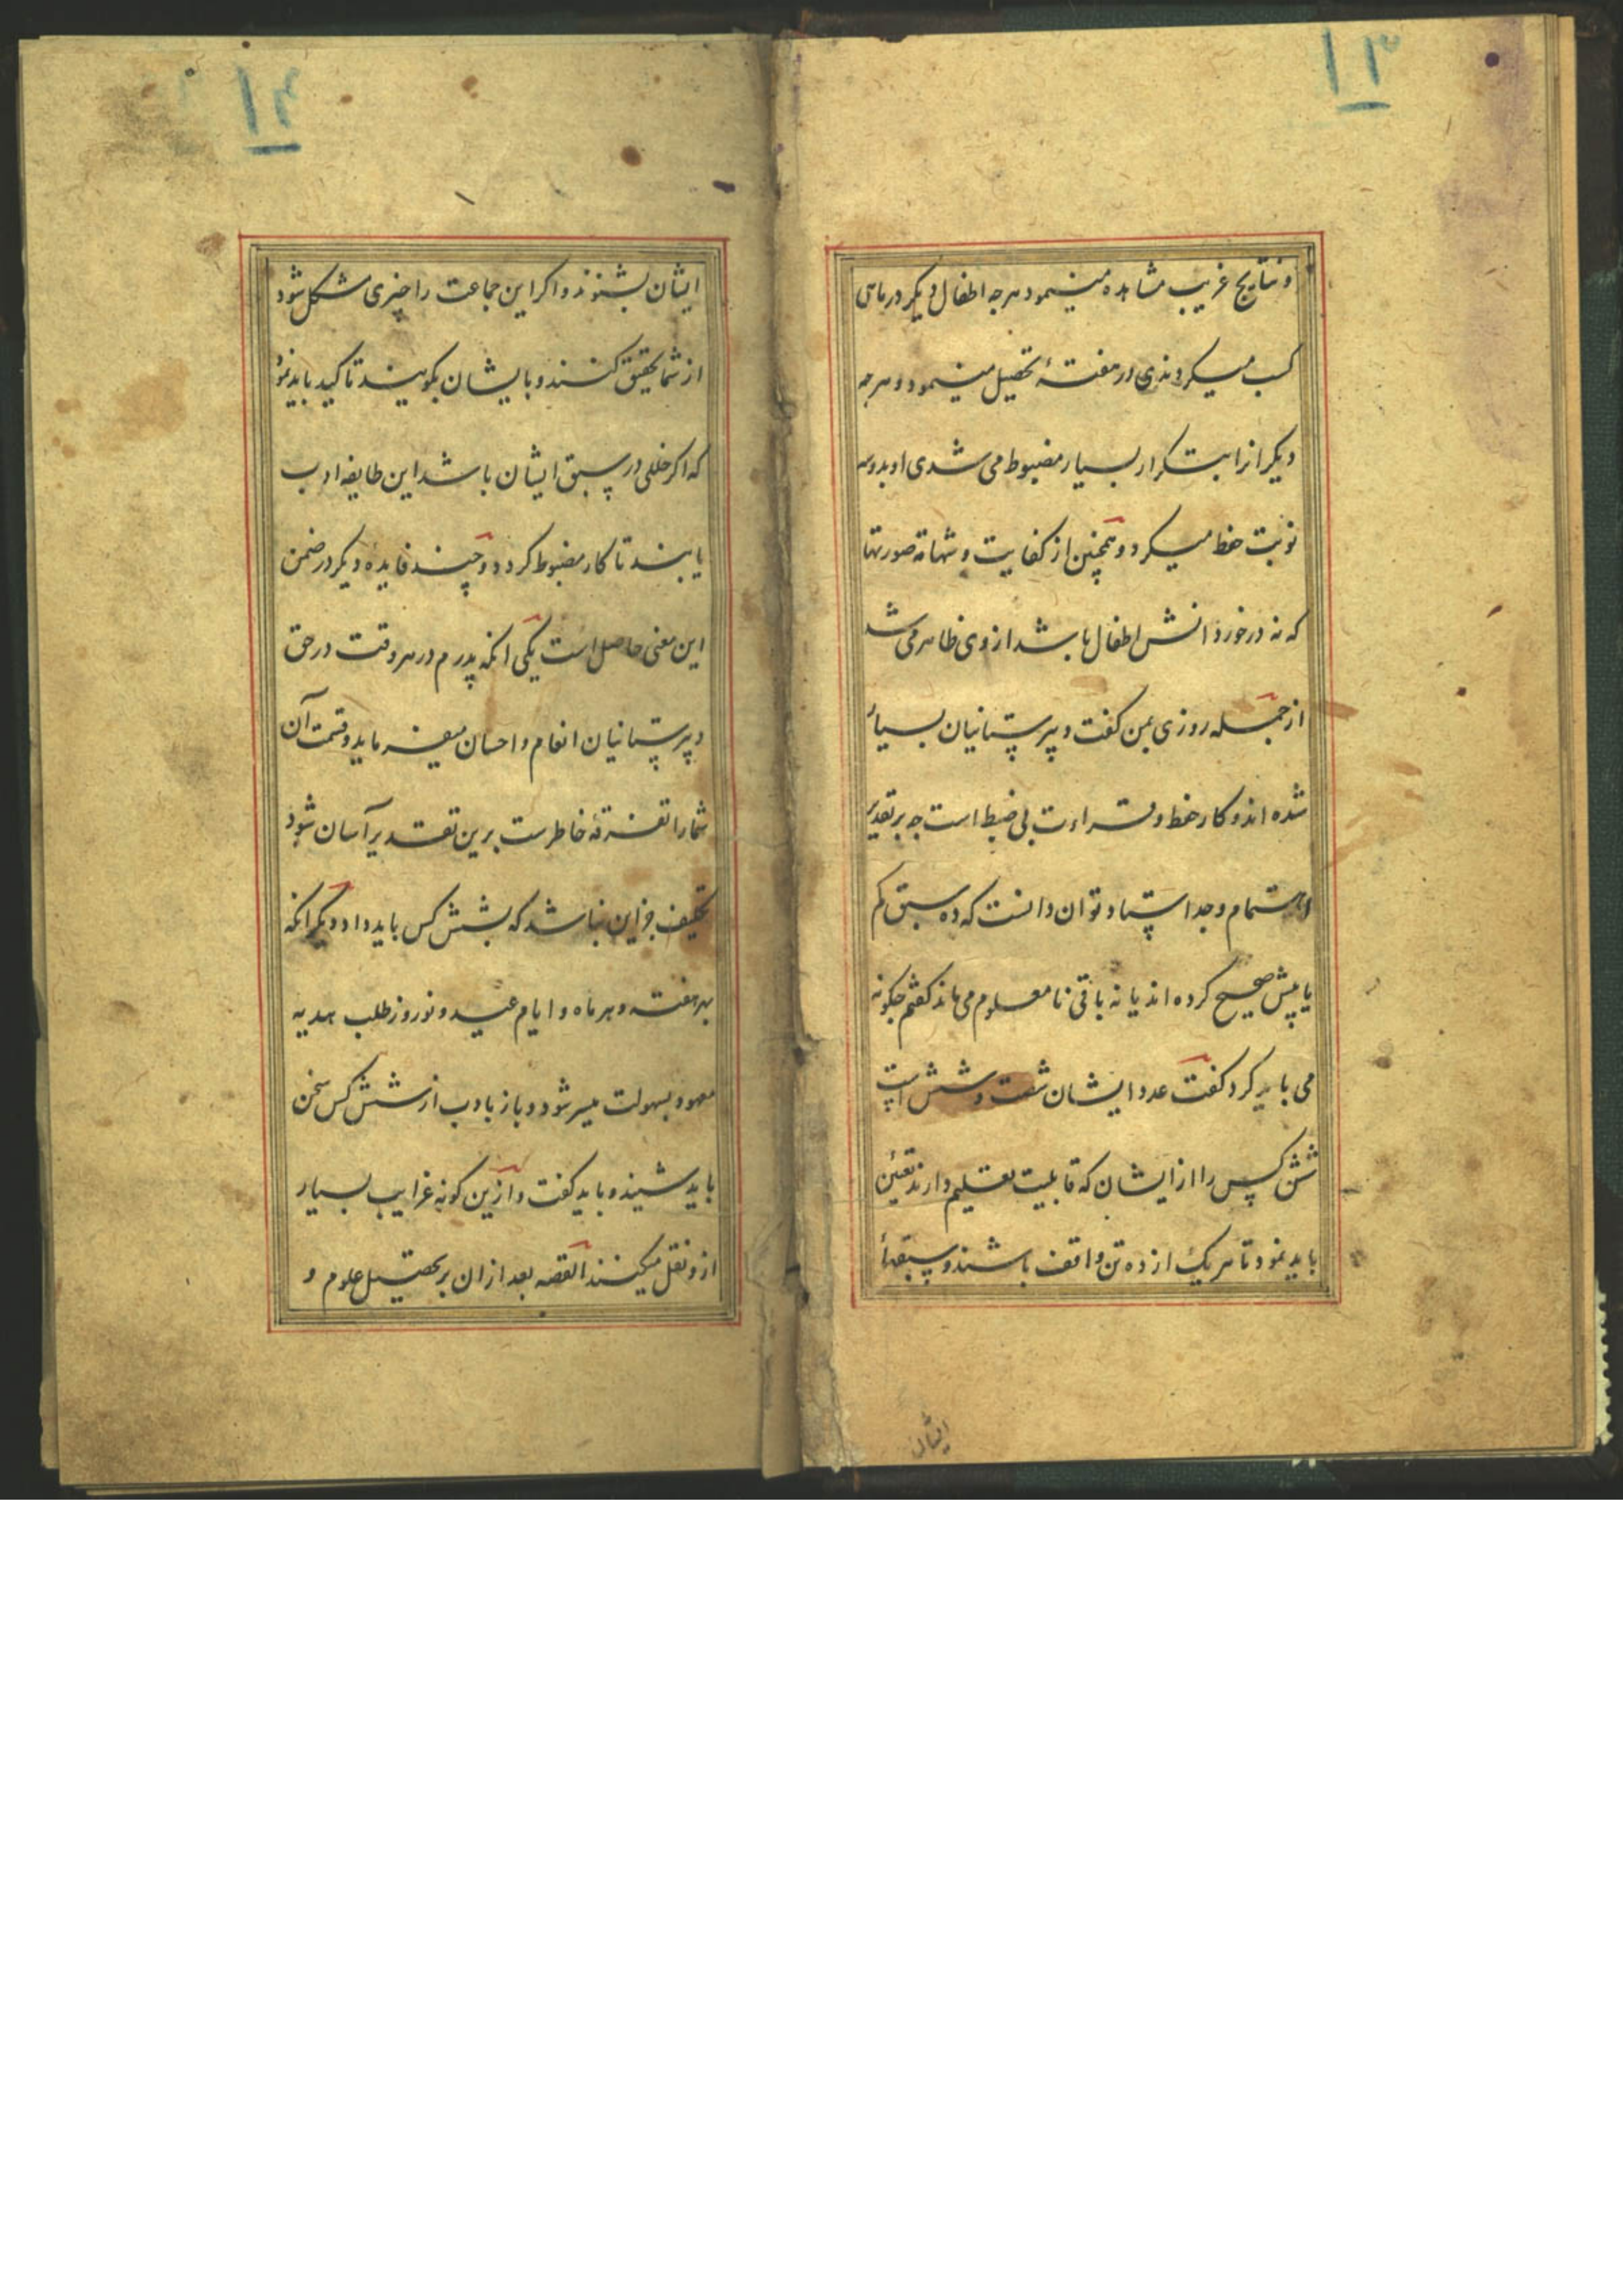 ۱۳
و نتایج غریب مشاهده مینمود هرجه اطفال دیکر در ماهی
کسب میکردندی در هفتهٔ تحصیل مینمود و هرجه
دیکرانرا بتکرار بسیار مضبوط می شدی او بدوسه
نوبت حفظ میکرد و همچنین از کفایت و شهامة صورتها
که نه در خورد دانش اطفال باشد از وی ظاهر می شد
از جمله روزی بمن کفت دبیرستانیان بسیار
شده اند و کار حفظ و قراءت بی ضبط است جه بر تقدیر
اهتمام و جد استاد توان دانست که ده سبق کم
یا بیش صحیح کرده اند یا نه باقی نامعلوم می ماند کفتم جکونه
می باید کرد کفت عدد ایشان شصت و شش است
شش کس را از ایشان که قابلیت تعلیم دارند تعیین
باید نمود تا هر یک از ده تن واقف باشند و سبقهاء
ایشان
۱۴
ایشان بشنوند و اکر این جماعت را چیزی مشکل شود
از شما تحقیق کنند و بایشان بکویند تاکید باید نمود
که اکر خللی در سبق ایشان باشد این طایفه ادب
یابند تا کار مضبوط کردد و چند فایده دیکر در ضمن
این معنی حاصل است یکی انکه پدرم در هر وقت در حق
دبیرستانیان انعام و احسان میفرماید و قسمت آن
شما را تفرقهٔ خاطرست برین تقدیر آسان شود
تخفیف جز این نباشد که بشش کس باید داد و دیکر انکه
بهر هفته و هر ماه و ایام عید و نوروز طلب هدیه
معهود بسهولت میسر شود و باز بادب از شش کس سخن
باید شنید و باید کفت و ازین کونه غرایب بسیار
ازو نقل میکنند القصه بعد از ان بر تحصیل علوم و